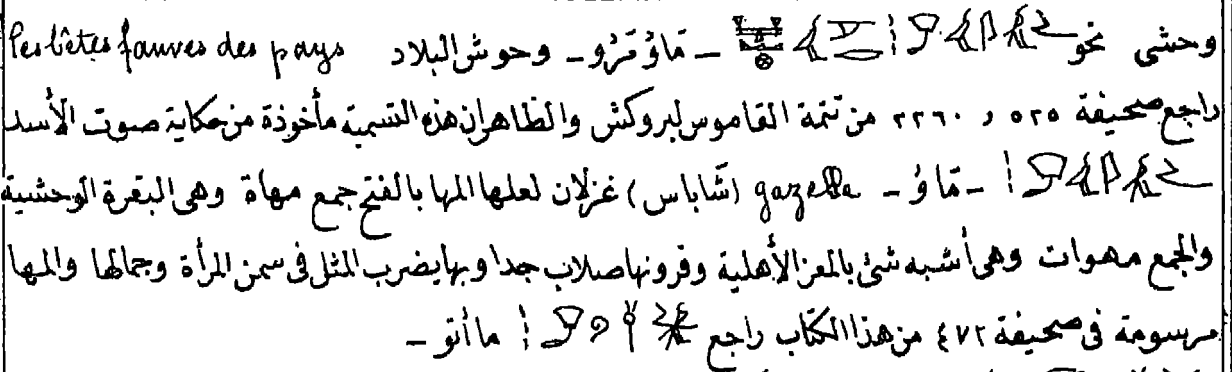 وحشى نحو - مَاوُ مَرُو - وحوش البلاد les bêtes fauves des pays
راجع صحيفة ٥٢٥ و ٢٢٦٠ من تتمة القاموس لبروكش والظاهران هذه التسمية مأخوذة من حكاية صوت الأسد
- مَاوُ - gazelle (شاباس) غزلان لعلها المها بالفتح جمع مهاة وهى البقرة الوحشية
والجمع مهوات وهى أشبه شئ بالمعز الأهلية وقرونها صلاب جدا وبها يضرب المثل فى سمن المرأة وجمالها والمها
مرسومة فى صحيفة ٤٧٢ من هذا الكتاب راجع ما أتو -